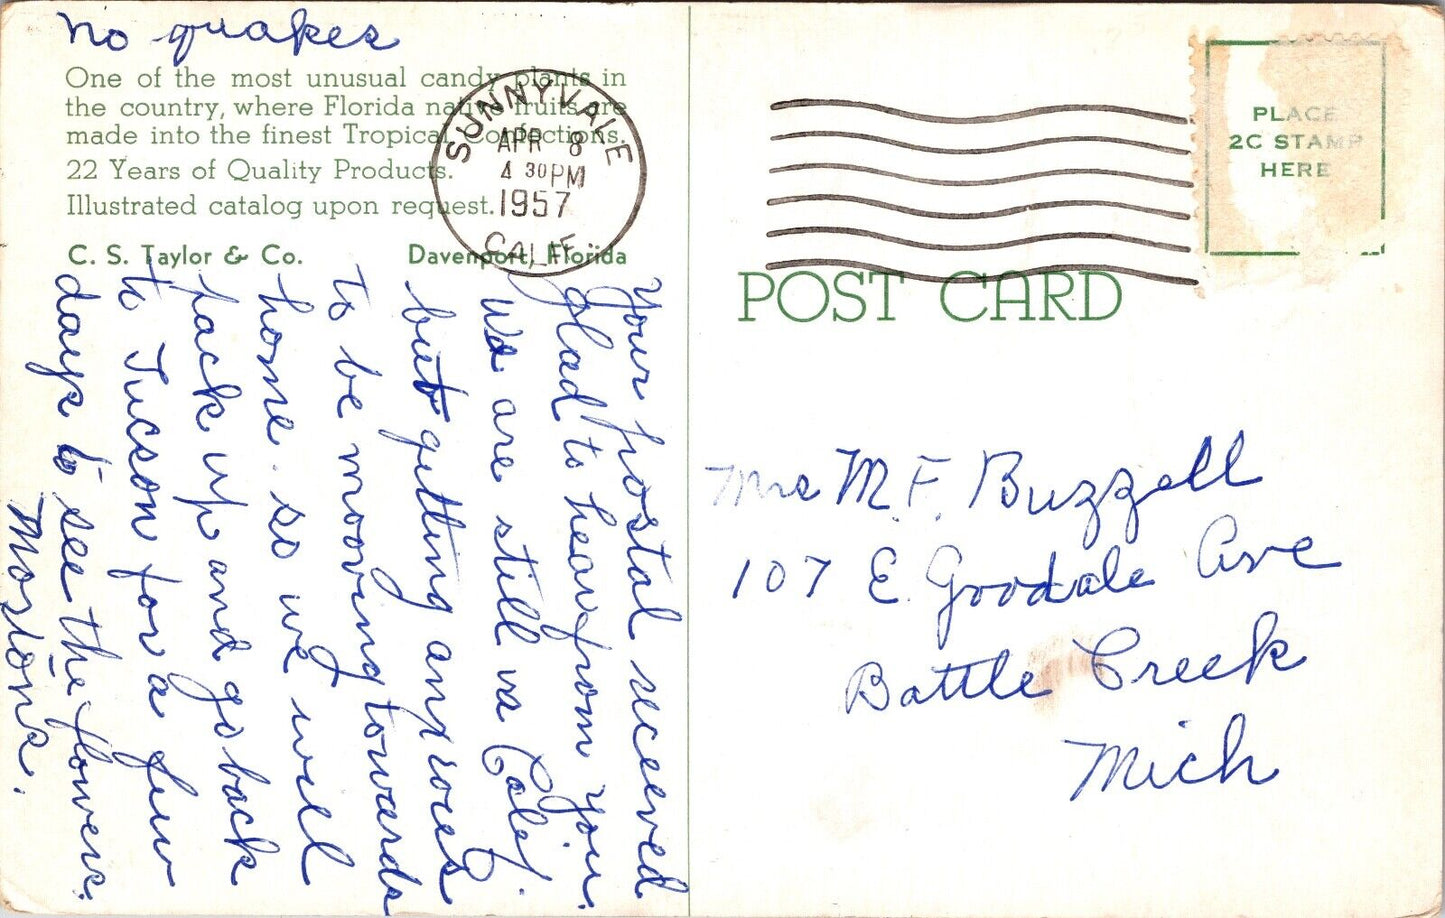 no quakes
One of the most unusual candy plants in
the country, where Florida native fruits are
made into the finest Tropical Confections.
22 Years of Quality Products.
Illustrated catalog upon request.
C. S. Taylor & Co. Davenport, Florida
SUNNYVALE
APR 8
4 30 PM
1957
CALIF.
PLACE
2C STAMP
HERE
POST CARD
Your postal received
glad to hear from you.
We are still in Calif.
but getting anxious
to be mooving towards
home. so we will
pack up and go back
to Tucson for a few
days to see the flowers.
Mostons.
Mrs M. F. Buzzell
107 E. Goodale Ave
Battle Creek
Mich